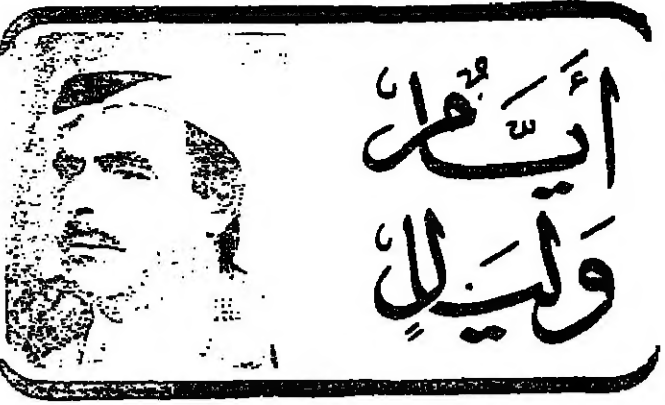 أَيَّامٌ
وَليَالٍ